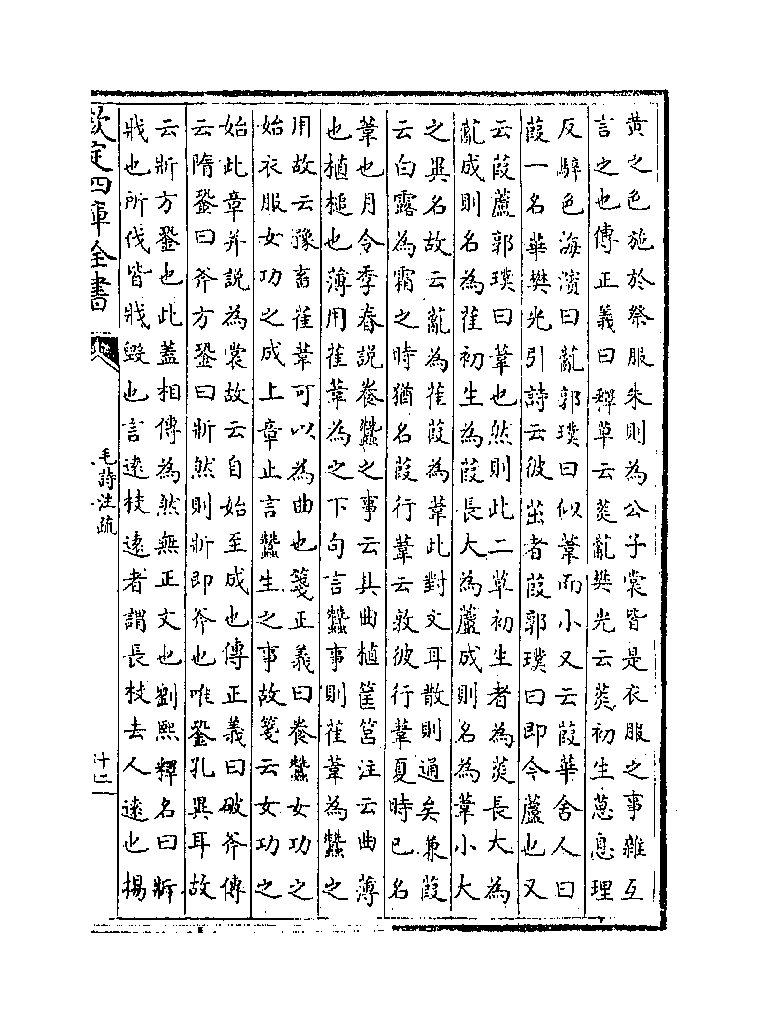 黄之色施於祭服朱則為公子裳皆是衣服之事雜互
言之也傳正義曰釋草云菼薍樊光云菼初生葸息理
反騂色海濱曰薍郭璞曰似葦而小又云葭華舍人曰
葭一名華樊光引詩云彼茁者葭郭璞曰即今蘆也又
云葭蘆郭璞曰葦也然則此二草初生者為菼長大為
薍成則名為萑初生為葭長大為蘆成則名為葦小大
之異名故云薍為萑葭為葦此對文耳散則通矣蒹葭
云白露為霜之時猶名葭行葦云敦彼行葦夏時已名
葦也月令季春說養蠶之事云具曲植筐筥注云曲薄
也植槌也薄用萑葦為之下句言蠶事則萑葦為蠶之
用故云豫畜萑葦可以為曲也箋正義曰養蠶女功之
始衣服女功之成上章止言蠶生之事故箋云女功之
始此章并說為裳故云自始至成也傳正義曰破斧傳
云隋銎曰斧方銎曰斨然則斨即斧也唯銎孔異耳故
云斨方銎也此蓋相傳為然無正文也劉熙釋名曰斨
戕也所伐皆戕毀也言遠枝遠者謂長枝去人遠也楊
欽定四庫全書
毛詩注疏
十二